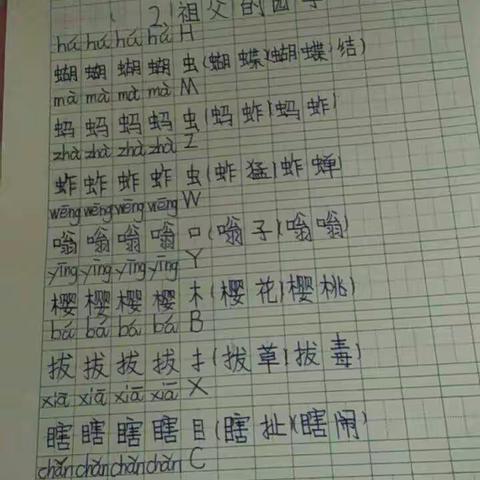 2、祖父的园子
hú hú hú hú H
蝴 蝴 蝴 蝴 虫(蝴 蝶)(蝴 蝶 结)
mà mà mà mà M
蚂 蚂 蚂 蚂 虫(蚂 蚱)(蚂 蚱)
zhà zhà zhà zhà Z
蚱 蚱 蚱 蚱 虫(蚱 猛)(蚱 蝉)
wēng wēng wēng wēng W
嗡 嗡 嗡 嗡 口(嗡 子)(嗡 嗡)
yīng yīng yīng yīng Y
樱 樱 樱 樱 木(樱 花)(樱 桃)
bá bá bá bá B
拔 拔 拔 拔 扌(拔 草)(拔 毒)
xiā xiā xiā xiā X
瞎 瞎 瞎 瞎 目(瞎 扯)(瞎 闹)
chǎn chǎn chǎn chǎn C